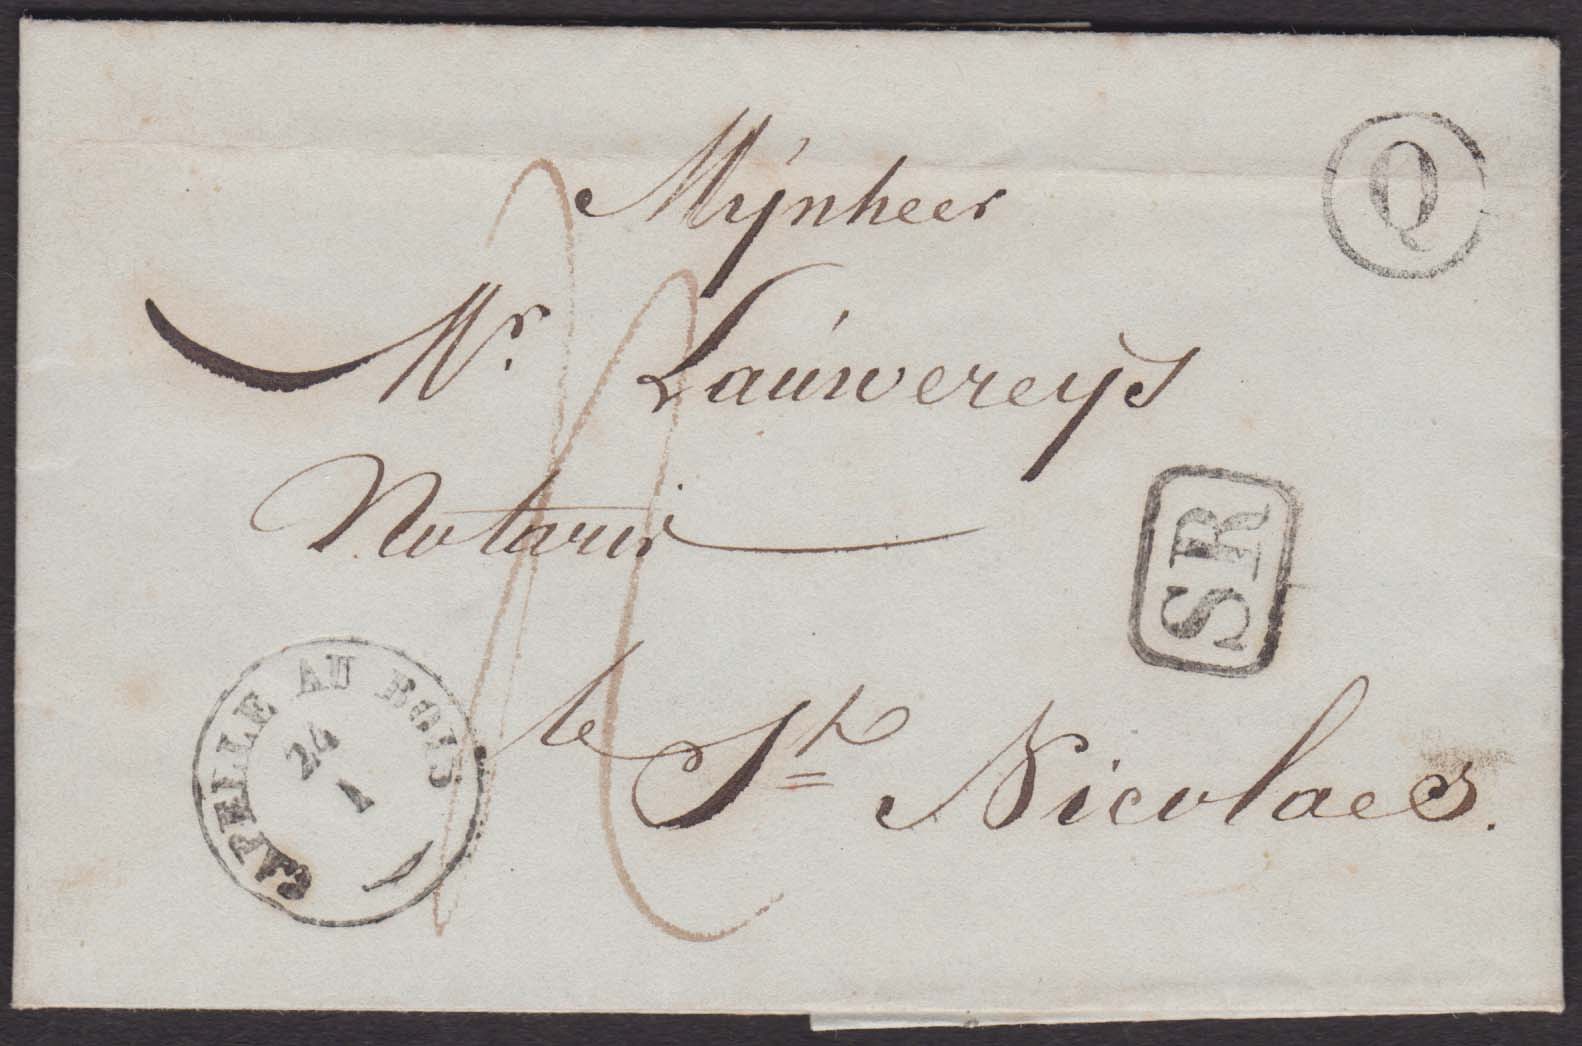 Mijnheer
Q
Mr. Lauwereys
Notaris
SR
te St. Nicolaes.
CAPELLE AU BOIS
24
1